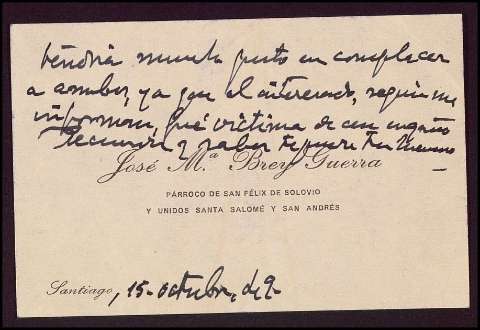 tendría mucho gusto en complacer
a ambos, ya que el interesado, según me
informan, fué víctima de un engaño
y saber
José Mª Brey Guerra
PÁRROCO DE SAN FÉLIX DE SOLOVIO
Y UNIDOS SANTA SALOMÉ Y SAN ANDRÉS
Santiago, 15-octubre, de